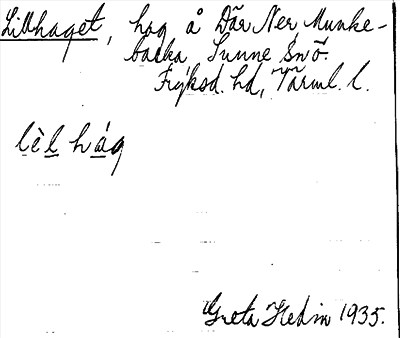 Lillhaget, hag å Där Ner, Munke-
backa, Sunne Snō.
Fryksd. hd, Värml. l.
lèl hág
Greta Hedin 1935.